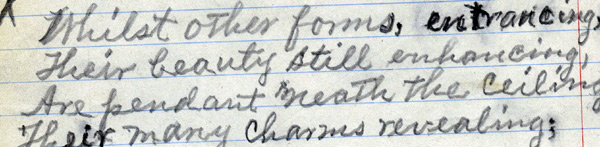 Whilst other forms, entrancing,
Their beauty still enhancing,
Are pendant 'neath the ceiling
Their many charms revealing;